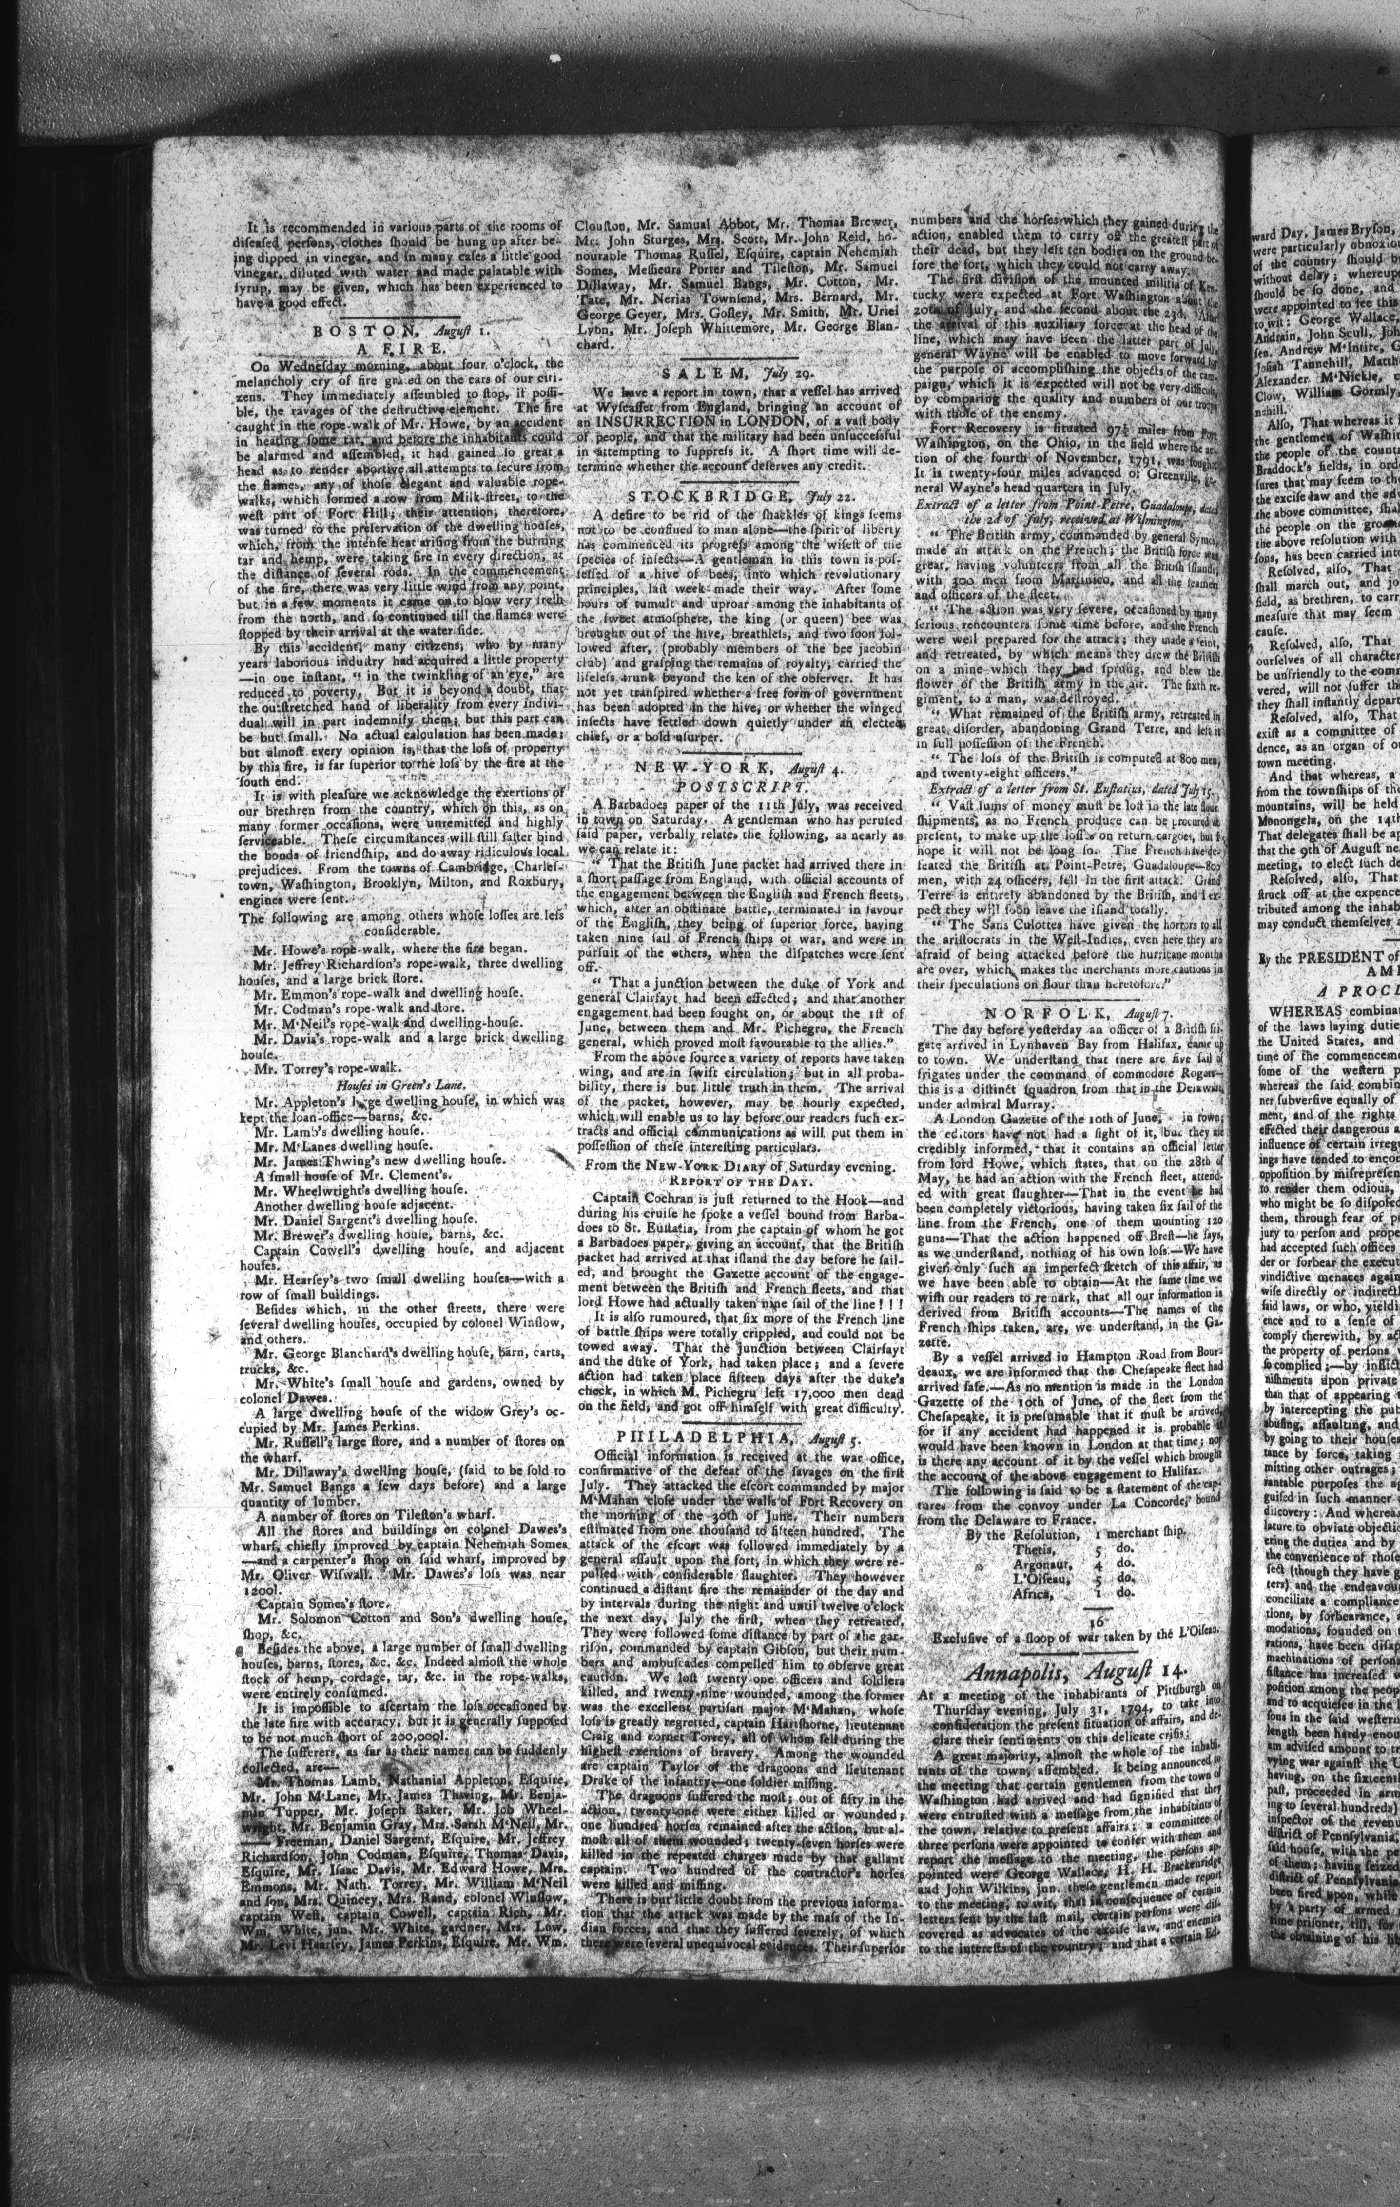 It is recommended in various parts of the rooms of
diseased persons, clothes should be hung up after be-
ing dipped in vinegar, and in many cases a little good
vinegar, diluted with water and made palatable with
syrup, may be given, which has been experienced to
have a good effect.
BOSTON, August 1.
A FIRE.
On Wednesday morning, about four o'clock, the
melancholy cry of fire grated on the ears of our citi-
zens. They immediately assembled to stop, if possi-
ble, the ravages of the destructive element. The fire
caught in the rope-walk of Mr. Howe, by an accident
in heating some tar, and before the inhabitants could
be alarmed and assembled, it had gained so great a
head as to render abortive all attempts to secure from
the flames, any of those elegant and valuable rope-
walks, which formed a row from Milk-street, to the
west part of Fort Hill; their attention, therefore,
was turned to the preservation of the dwelling houses,
which, from the intense heat arising from the burning
tar and hemp, were taking fire in every direction, at
the distance of several rods. In the commencement
of the fire, there was very little wind from any point,
but in a few moments it came on to blow very fresh
from the north, and so continued till the flames were
stopped by their arrival at the water side.
By this accident, many citizens, who by many
years laborious industry had acquired a little property
—in one instant, "in the twinkling of an eye," are
reduced to poverty. But it is beyond a doubt, that
the outstretched hand of liberality from every indivi-
dual will in part indemnify them; but this part can
be but small. No actual calculation has been made;
but almost every opinion is, that the loss of property
by this fire, is far superior to the loss by the fire at the
south end.
It is with pleasure we acknowledge the exertions of
our brethren from the country, which on this, as on
many former occasions, were unremitted and highly
serviceable. These circumstances will still faster bind
the bonds of friendship, and do away ridiculous local
prejudices. From the towns of Cambridge, Charles-
town, Washington, Brooklyn, Milton, and Roxbury,
engines were sent.
The following are among others whose losses are less
considerable.
Mr. Howe's rope-walk, where the fire began.
Mr. Jeffrey Richardson's rope-walk, three dwelling
houses, and a large brick store.
Mr. Emmon's rope-walk and dwelling house.
Mr. Codman's rope-walk and store.
Mr. M'Neil's rope-walk and dwelling-house.
Mr. Davis's rope-walk and a large brick dwelling
house.
Mr. Torrey's rope-walk.
Houses in Green's Lane.
Mr. Appleton's large dwelling house, in which was
kept the loan-office—barns, &c.
Mr. Lamb's dwelling house.
Mr. M'Lanes dwelling house.
Mr. James Thwing's new dwelling house.
A small house of Mr. Clement's.
Mr. Wheelwright's dwelling house.
Another dwelling house adjacent.
Mr. Daniel Sargent's dwelling house.
Mr. Brewer's dwelling house, barns, &c.
Captain Cowell's dwelling house, and adjacent
houses.
Mr. Hearsey's two small dwelling houses—with a
row of small buildings.
Besides which, in the other streets, there were
several dwelling houses, occupied by colonel Winslow,
and others.
Mr. George Blanchard's dwelling house, barn, carts,
trucks, &c.
Mr. White's small house and gardens, owned by
colonel Dawes.
A large dwelling house of the widow Grey's oc-
cupied by Mr. James Perkins.
Mr. Russell's large store, and a number of stores on
the wharf.
Mr. Dillaway's dwelling house, (said to be sold to
Mr. Samuel Bangs a few days before) and a large
quantity of lumber.
A number of stores on Tileston's wharf.
All the stores and buildings on colonel Dawes's
wharf, chiefly improved by captain Nehemiah Somes
—and a carpenter's shop on said wharf, improved by
Mr. Oliver Wiswall. Mr. Dawes's loss was near
1200l.
Captain Somes's store.
Mr. Solomon Cotton and Son's dwelling house,
shop, &c.
Besides the above, a large number of small dwelling
houses, barns, stores, &c. &c. Indeed almost the whole
stock of hemp, cordage, tar, &c. in the rope-walks,
were entirely consumed.
It is impossible to ascertain the loss occasioned by
the late fire with accuracy, but it is generally supposed
to be not much short of 200,000l.
The sufferers, as far as their names can be suddenly
collected, are—
Mr. Thomas Lamb, Nathanial Appleton, Esquire,
Mr. John M'Lane, Mr. James Thwing, Mr. Benja-
min Tupper, Mr. Joseph Baker, Mr. Job Wheel-
wright, Mr. Benjamin Gray, Mrs. Sarah M'Neil, Mr.
—— Freeman, Daniel Sargent, Esquire, Mr. Jeffrey
Richardson, John Codman, Esquire, Thomas Davis,
Esquire, Mr. Isaac Davis, Mr. Edward Howe, Mrs.
Emmons, Mr. Nath. Torrey, Mr. William M'Neil
and son, Mrs. Quincey, Mrs. Rand, colonel Winslow,
captain West, captain Cowell, captain Rich, Mr.
Wm. White, jun. Mr. White, gardner, Mrs. Low,
Mr. Levi Hearsey, James Perkins, Esquire, Mr. Wm.
Clouston, Mr. Samual Abbot, Mr. Thomas Brewer,
Mr. John Sturges, Mrs. Scott, Mr. John Reid, ho-
nourable Thomas Russel, Esquire, captain Nehemiah
Somes, Messieurs Porter and Tileston, Mr. Samuel
Dillaway, Mr. Samuel Bangs, Mr. Cutton, Mr.
Tate, Mr. Nerias Townsend, Mrs. Bernard, Mr.
George Geyer, Mrs. Gosley, Mr. Smith, Mr. Uriel
Lyon, Mr. Joseph Whittemore, Mr. George Blan-
chard.
SALEM, July 29.
We have a report in town, that a vessel has arrived
at Wyscasset from England, bringing an account of
an INSURRECTION in LONDON, of a vast body
of people, and that the military had been unsuccessful
in attempting to suppress it. A short time will de-
termine whether the account deserves any credit.
STOCKBRIDGE, July 22.
A desire to be rid of the shackles of kings seems
not to be confined to man alone—the spirit of liberty
has commenced its progress among the wisest of the
species of insects—A gentleman in this town is pos-
sessed of a hive of bees, into which revolutionary
principles, last week made their way. After some
hours of tumult and uproar among the inhabitants of
the sweet atmosphere, the king (or queen) bee was
brought out of the hive, breathless, and two soon fol-
lowed after, (probably members of the bee jacobin
club) and grasping the remains of royalty, carried the
lifeless trunk beyond the ken of the observer. It has
not yet transpired whether a free form of government
has been adopted in the hive, or whether the winged
insects have settled down quietly under an elected
chief, or a bold usurper.
NEW-YORK, August 4.
POSTSCRIPT.
A Barbadoes paper of the 11th July, was received
in town on Saturday. A gentleman who has perused
said paper, verbally relates the following, as nearly as
we can relate it:
"That the British June packet had arrived there in
a short passage from England, with official accounts of
the engagement between the English and French fleets,
which, after an obstinate battle, terminated in favour
of the English, they being of superior force, having
taken nine sail of French ships of war, and were in
pursuit of the others, when the dispatches were sent
off.
"That a junction between the duke of York and
general Clairfayt had been effected; and that another
engagement had been fought on, or about the 1st of
June, between them and Mr. Pichegru, the French
general, which proved most favourable to the allies."
From the above source a variety of reports have taken
wing, and are in swift circulation; but in all proba-
bility, there is but little truth in them. The arrival
of the packet, however, may be hourly expected,
which will enable us to lay before our readers such ex-
tracts and official communications as will put them in
possession of these interesting particulars.
From the NEW-YORK DIARY of Saturday evening.
REPORT OF THE DAY.
Captain Cochran is just returned to the Hook—and
during his cruise he spoke a vessel bound from Barba-
does to St. Eustatia, from the captain of whom he got
a Barbadoes paper, giving an account, that the British
packet had arrived at that island the day before he sail-
ed, and brought the Gazette account of the engage-
ment between the British and French fleets, and that
lord Howe had actually taken nine sail of the line!!!
It is also rumoured, that six more of the French line
of battle ships were totally crippled, and could not be
towed away. That the junction between Clairfayt
and the duke of York, had taken place; and a severe
action had taken place fifteen days after the duke's
check, in which M. Pichegru left 17,000 men dead
on the field, and got off himself with great difficulty.
PHILADELPHIA, August 5.
Official information is received at the war office,
confirmative of the defeat of the savages on the first
July. They attacked the escort commanded by major
M'Mahan close under the walls of Fort Recovery on
the morning of the 30th of June. Their numbers
estimated from one thousand to fifteen hundred. The
attack of the escort was followed immediately by a
general assault upon the fort, in which they were re-
pulsed with considerable slaughter. They however
continued a distant fire the remainder of the day and
by intervals during the night and until twelve o'clock
the next day, July the first, when they retreated.
They were followed some distance by part of the gar-
rison, commanded by captain Gibson, but their num-
bers and ambuscades compelled him to observe great
caution. We lost twenty-one officers and soldiers
killed, and twenty-nine wounded, among the former
was the excellent partisan major M'Mahan, whose
loss is greatly regretted, captain Hartshorne, lieutenant
Craig and cornet Torrey, all of whom fell during the
highest exertions of bravery. Among the wounded
are captain Taylor of the dragoons and lieutenant
Drake of the infantry—one soldier missing.
The dragoons suffered the most; out of fifty in the
action, twenty-one were either killed or wounded;
one hundred horses remained after the action, but al-
most all of them wounded; twenty-seven horses were
killed in the repeated charges made by that gallant
captain. Two hundred of the contractor's horses
were killed and missing.
There is but little doubt from the previous informa-
tion that the attack was made by the mass of the In-
dian forces, and that they suffered severely, of which
there were several unequivocal evidences. Their superior
numbers and the horses which they gained during the
action, enabled them to carry off the greatest part of
their dead, but they left ten bodies on the ground be-
fore the fort, which they could not carry away.
The first division of the mounted militia of Ken-
tucky were expected at Fort Washington about the
20th of July, and the second about the 23d. After
the arrival of this auxiliary force at the head of the
line, which may have been the latter part of July,
general Wayne will be enabled to move forward for
the purpose of accomplishing the objects of the cam-
paign, which it is expected will not be very difficult,
by comparing the quality and numbers of our troops
with those of the enemy.
Fort Recovery is situated 97½ miles from Fort
Washington, on the Ohio, in the field where the ac-
tion of the fourth of November, 1791, was fought.
It is twenty-four miles advanced of Greenville, ge-
neral Wayne's head quarters in July.
Extract of a letter from Point-Petre, Guadaloupe, dated
the 2d of July, received at Wilmington.
"The British army, commanded by general Symes,
made an attack on the French; the British force was
great, having volunteers from all the British islands,
with 300 men from Martinico, and all the seamen
and officers of the fleet.
"The action was very severe, occasioned by many
serious rencounters some time before, and the French
were well prepared for the attack; they made a feint,
and retreated, by which means they drew the British
on a mine which they had sprung, and blew the
flower of the British army in the air. The sixth re-
giment, to a man, was destroyed.
"What remained of the British army, retreated in
great disorder, abandoning Grand Terre, and left it
in full possession of the French.
"The loss of the British is computed at 800 men,
and twenty-eight officers."
Extract of a letter from St. Eustatius, dated July 15.
"Vast sums of money must be lost in the late flour
shipments, as no French produce can be procured at
present, to make up the losses on return cargoes, but I
hope it will not be long so. The French have de-
feated the British at Point-Petre, Guadaloupe—800
men, with 24 officers, fell in the first attack. Grand
Terre is entirely abandoned by the British, and I ex-
pect they will soon leave the island totally.
"The Sans Culottes have given the horrors to all
the aristocrats in the West-Indies, even here they are
afraid of being attacked before the hurricane months
are over, which makes the merchants more cautious in
their speculations on flour than heretofore."
NORFOLK, August 7.
The day before yesterday an officer of a British fri-
gate arrived in Lynhaven Bay from Halifax, came up
to town. We understand that there are five sail of
frigates under the command of commodore Rogers—
this is a distinct squadron from that in the Delaware,
under admiral Murray.
A London Gazette of the 10th of June, in town;
the editors have not had a sight of it, but they are
credibly informed, that it contains an official letter
from lord Howe, which states, that on the 28th of
May, he had an action with the French fleet, attend-
ed with great slaughter—That in the event he had
been completely victorious, having taken six sail of the
line from the French, one of them mounting 120
guns—That the action happened off Brest—he says,
as we understand, nothing of his own loss.—We have
given only such an imperfect sketch of this affair, as
we have been able to obtain—At the same time we
wish our readers to remark, that all our information is
derived from British accounts—The names of the
French ships taken, are, we understand, in the Ga-
zette.
By a vessel arrived in Hampton Road from Bour-
deaux, we are informed that the Chesapeake fleet had
arrived safe.—As no mention is made in the London
Gazette of the 10th of June, of the fleet from the
Chesapeake, it is presumable that it must be arrived,
for if any accident had happened it is probable it
would have been known in London at that time; nor
is there any account of it by the vessel which brought
the account of the above engagement to Halifax.
The following is said to be a statement of the cap-
tures from the convoy under La Concorde, bound
from the Delaware to France.
By the Resolution, 1 merchant ship.
Thetis, 5 do.
Argonaut, 4 do.
L'Oiseau, 5 do.
Africa, 1 do.
16
Exclusive of a sloop of war taken by the L'Oiseau.
Annapolis, August 14.
At a meeting of the inhabitants of Pittsburgh on
Thursday evening, July 31, 1794, to take into
consideration the present situation of affairs, and de-
clare their sentiments on this delicate crisis;
A great majority, almost the whole of the inhabi-
tants of the town, assembled. It being announced to
the meeting that certain gentlemen from the town of
Washington had arrived and had signified that they
were entrusted with a message from the inhabitants of
the town, relative to present affairs; a committee of
three persons were appointed to confer with them and
report the message to the meeting, the persons ap-
pointed were George Wallace, H. H. Brackenridge
and John Wilkins, jun. these gentlemen made report
to the meeting, to wit, that in consequence of certain
letters sent by the last mail, certain persons were dis-
covered as advocates of the excise law, and enemies
to the interests of the country; and that a certain Ed-
ward Day, James Bryson,
were particularly obnoxious
of the country should be
without delay; whereup
should be so done, and
were appointed to see this
to wit: George Wallace,
Andrain, John Scull, Joh
sen. Andrew M'Intire, G
Josiah Tannehill, Matth
Alexander M'Nickle, c
Clow, William Gormly,
nshill.
Also, That whereas it
the gentlemen of Washin
the people of the countr
Braddock's fields, in orde
sures that may seem to the
the excise law and the aff
the above committee, shal
the people on the ground
the above resolution with
sons, has been carried into
Resolved, also, That
shall march out, and jo
field, as brethren, to carry
measure that may seem
cause.
Resolved, also, That
ourselves of all character
be unfriendly to the comm
vered, will not suffer th
they shall instantly depart
Resolved, also, That
exist as a committee of
dence, as an organ of ou
town meeting.
And that whereas, a
from the townships of the
mountains, will be held
Monongela, on the 14th
That delegates shall be ap
that the 9th of August ne
meeting, to elect such de
Resolved, also, That
struck off at the expence
tributed among the inhab
may conduct themselves a
By the PRESIDENT of
AME
A PROCL
WHEREAS combinat
of the laws laying dutie
the United States, and
time of the commencem
some of the western p
whereas the said combin
ner subversive equally of
ment, and of the rights
effected their dangerous a
influence of certain irreg
ings have tended to encou
opposition by misrepresen
to render them odious,
who might be so disposed
them, through fear of p
jury to person and prope
had accepted such offices
der or forbear the execut
vindictive menaces again
wise directly or indirectl
said laws, or who, yieldi
ence and to a sense of
comply therewith, by ac
the property of persons
so complied;—by inflict
nishments upon private
than that of appearing
by intercepting the pub
abusing, assaulting, and
by going to their houses
tance by force, taking
mitting other outrages;
rantable purposes the ag
guised in such manner
discovery: And whereas
lature to obviate objecti
ering the duties and by
the convenience of those
fect (though they have g
ters) and the endeavou
conciliate a compliance
tions, by forbearance,
modations, founded on
rations, have been disap
machinations of persons
sistance has increased
position among the peop
and to acquiesce in the
sons in the said western
length been hardy enou
am advised amount to tr
vying war against the U
having, on the sixteen
past, proceeded in arm
ing to several hundreds)
inspector of the revenu
district of Pennsylvania
said house, with the pe
of them; having seized
district of Pennsylvania
been fired upon, while
by a party of armed
time prisoner, till, for
the obtaining of his lib